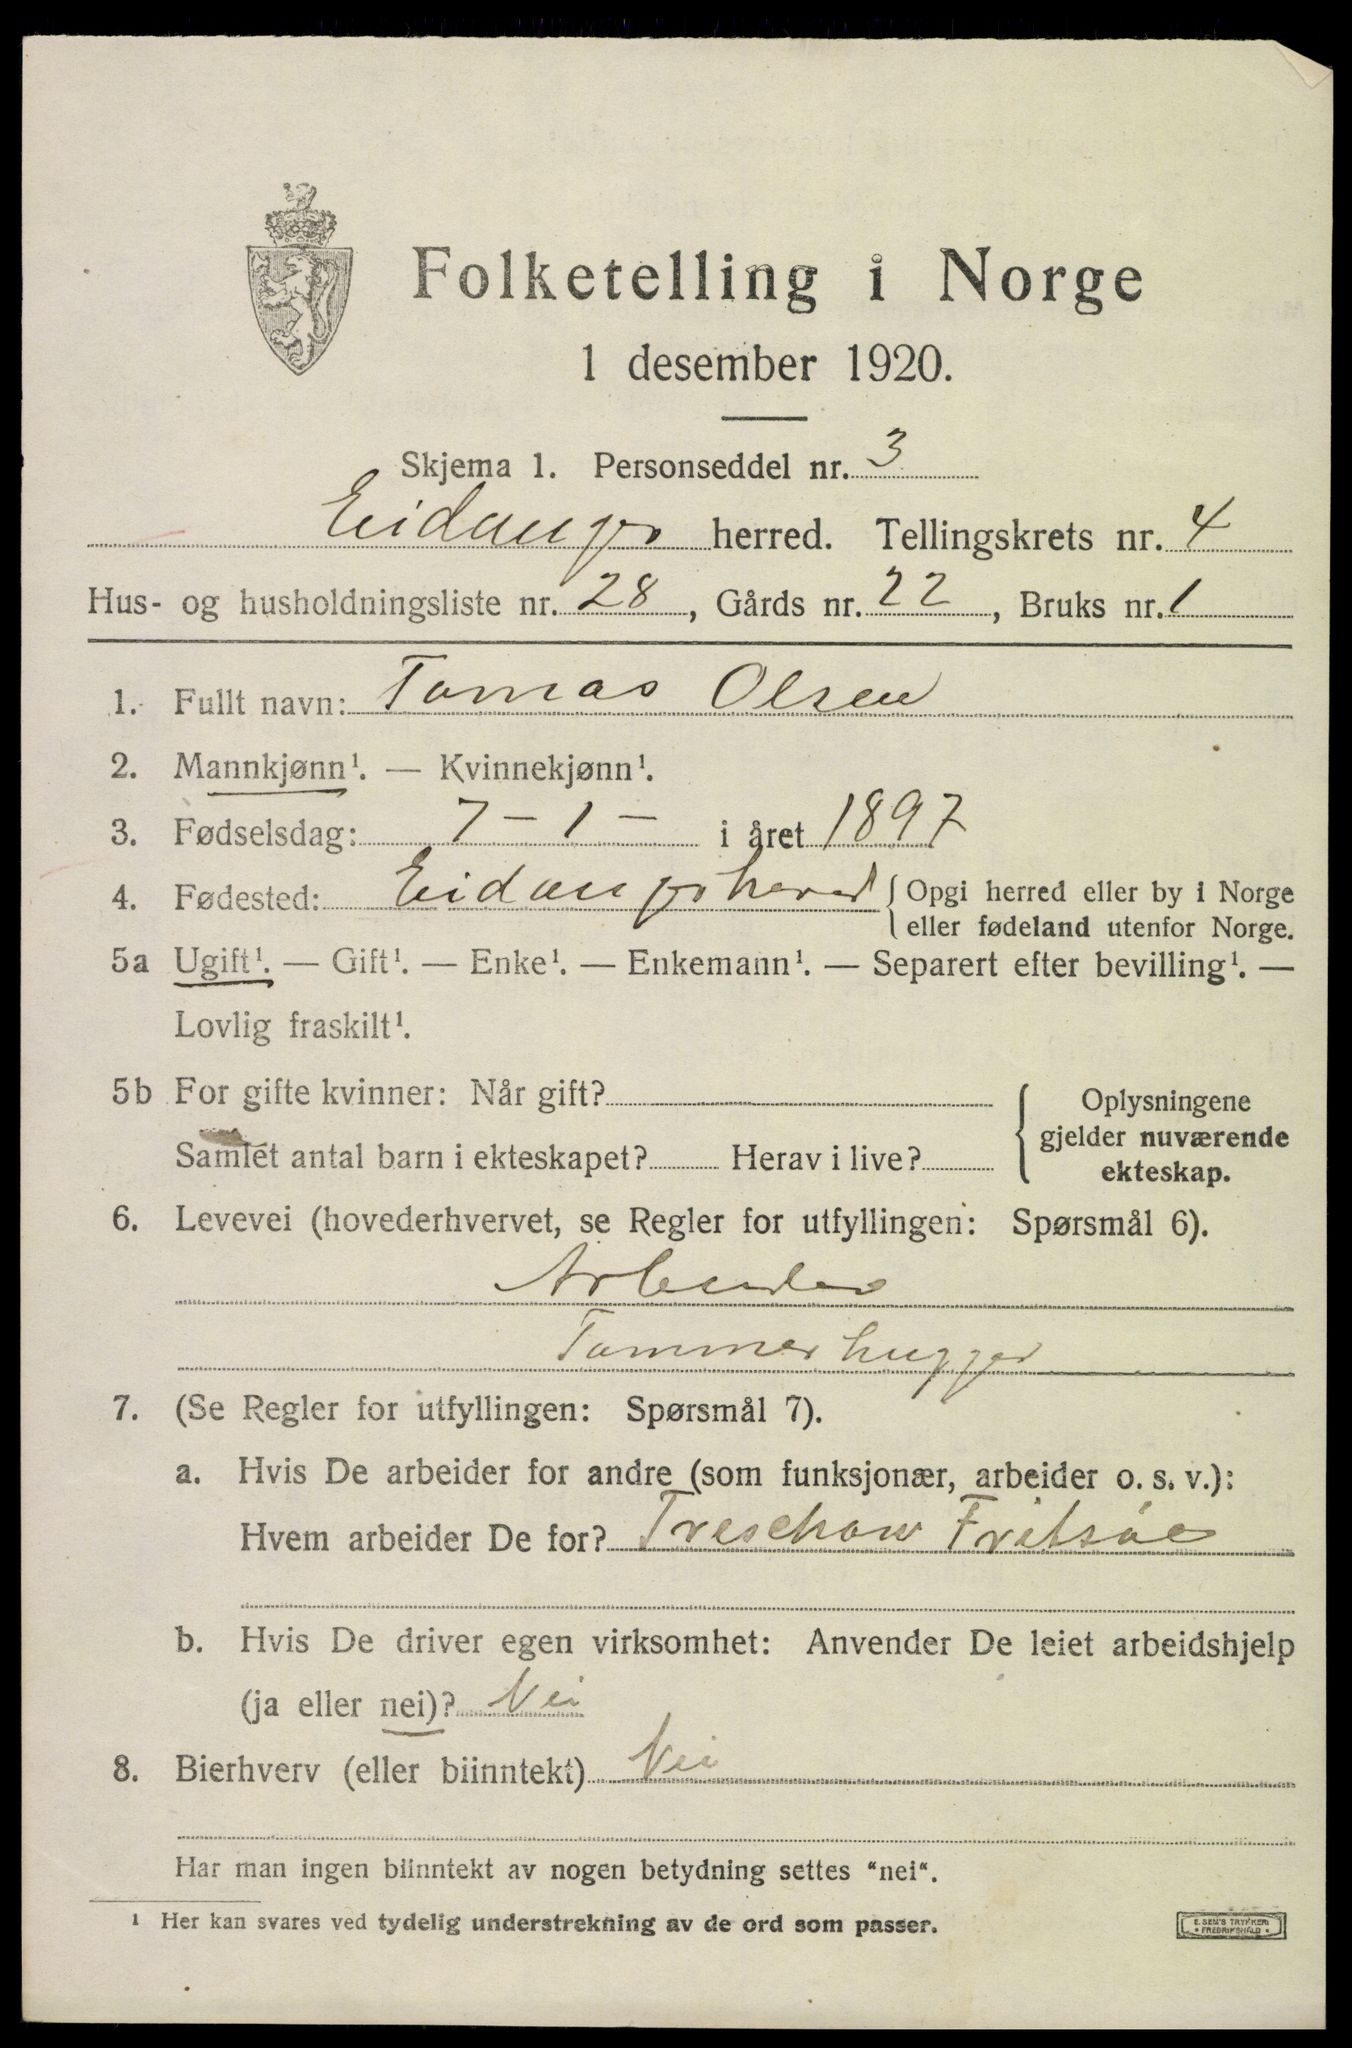 Folketelling i Norge
1 desember 1920.
Skjema 1. Personseddel nr. 3
Eidanger herred. Tellingskrets nr. 4
Hus- og husholdningsliste nr. 28, Gårds nr. 22, Bruks nr. 1
1. Fullt navn: Tomas Olsen
2. Mannkjønn¹. — Kvinnekjønn¹.
3. Fødselsdag: 7 – 1 – i året 1897
4. Fødested: Eidanger herred { Opgi herred eller by i Norge
eller fødeland utenfor Norge.
5a Ugift¹. — Gift¹. — Enke¹. — Enkemann¹. — Separert efter bevilling¹. —
Lovlig fraskilt¹.
5b For gifte kvinner: Når gift?
Samlet antal barn i ekteskapet? Herav i live?
Oplysningene
gjelder nuværende
ekteskap.
6. Levevei (hovederhvervet, se Regler for utfyllingen: Spørsmål 6).
Arbeider
Tømmerhugger
7. (Se Regler for utfyllingen: Spørsmål 7).
a. Hvis De arbeider for andre (som funksjonær, arbeider o. s. v.):
Hvem arbeider De for? Treschow Fritsöe
b. Hvis De driver egen virksomhet: Anvender De leiet arbeidshjelp
(ja eller nei)? Nei
8. Bierhverv (eller biinntekt) Nei
Har man ingen biinntekt av nogen betydning settes "nei".
¹ Her kan svares ved tydelig understrekning av de ord som passer.
E. SEM'S TRYKKERI
• FREDRIKSHALD •